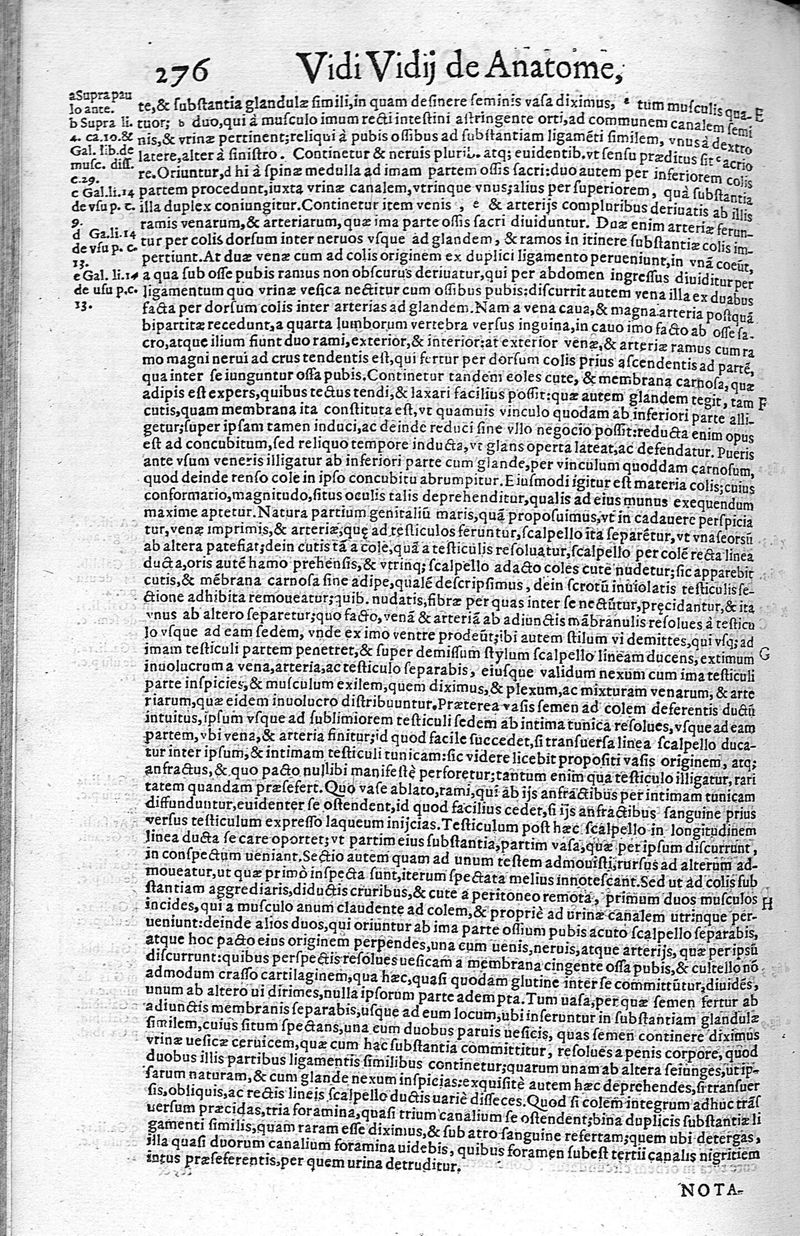 276 Vidi Vidij de Anatome,
a Supra pau
lo ante.
b Supra li.
4. ca. 10. &
Gal. lib. de
musc. diss.
c. 29.
c Gal. li. 14
de vsu p. c.
9.
d Ga. li. 14
de vsu p. c.
13.
e Gal. li. 14
de usu p. c.
13.
te, & substantia glandulæ simili, in quam desinere seminis vasa diximus, ª tum musculis qua- E
tuor; b duo, qui à musculo imum recti intestini astringente orti, ad communem canalem semi
nis, & vrinæ pertinent; reliqui à pubis ossibus ad substantiam ligamēti similem, vnus à dextro
latere, alter à sinistro. Continetur & neruis plurib. atq; euidentib. vt sensu præditus sit c acrio
re. Oriuntur, d hi à spinæ medulla ad imam partem ossis sacri; duo autem per inferiorem colis
partem procedunt, iuxta vrinæ canalem, vtrinque vnus; alius per superiorem, quà substantia
illa duplex coniungitur. Continetur item venis, e & arterijs compluribus deriuatis ab illis
ramis venarum, & arteriarum, quæ ima parte ossis sacri diuiduntur. Duæ enim arteriæ ferun-
tur per colis dorsum inter neruos vsque ad glandem, & ramos in itinere substantiæ colis im-
pertiunt. At duæ venæ cum ad colis originem ex duplici ligamento perueniunt, in vnā coeūt,
a qua sub osse pubis ramus non obscurus deriuatur, qui per abdomen ingressus diuiditur per
ligamentum quo vrinæ vesica nectitur cum ossibus pubis: discurrit autem vena illa ex duabus
facta per dorsum colis inter arterias ad glandem. Nam a vena caua, & magna arteria postquā
bipartitæ recedunt, a quarta lumborum vertebra versus inguina, in cauo imo facto ab osse sa-
cro, atque ilium fiunt duo rami, exterior, & interior: at exterior venæ, & arteriæ ramus cum ra
mo magni nerui ad crus tendentis est, qui fertur per dorsum colis prius ascendentis ad partē,
qua inter se iunguntur ossa pubis. Continetur tandem coles cute, & membrana carnosa, quæ
adipis est expers, quibus tectus tendi, & laxari facilius possit: quæ autem glandem tegit, tam F
cutis, quam membrana ita constituta est, vt quamuis vinculo quodam ab inferiori parte alli-
getur; super ipsam tamen induci, ac deinde reduci sine vllo negocio possit: reducta enim opus
est ad concubitum, sed reliquo tempore inducta, vt glans operta lateat, ac defendatur. Pueris
ante vsum veneris illigatur ab inferiori parte cum glande, per vinculum quoddam carnosum,
quod deinde tenso cole in ipso concubitu abrumpitur. Eiusmodi igitur est materia colis; cuius
conformatio, magnitudo, situs oculis talis deprehenditur, qualis ad eius munus exequendum
maxime aptetur. Natura partium genitaliū maris, quā proposuimus, vt in cadauere perspicia
tur, venæ imprimis, & arteriæ, quę ad testiculos feruntur, scalpello ita separētur, vt vna seorsū
ab altera patefiat; dein cutis tā a cole, quā a testiculis resoluatur, scalpello per colē recta linea
ducta, oris autē hamo prehensis, & vtrinq; scalpello adacto coles cute nudetur; sic apparebit
cutis, & mēbrana carnosa sine adipe, qualē descripsimus, dein scrotū inuiolatis testiculis se-
ctione adhibita remoueatur; quib. nudatis, fibræ per quas inter se nectūtur, pręcidantur, & ita
vnus ab altero separetur; quo facto, venā & arteriā ab adiunctis mābranulis resolues à testicu
lo vsque ad eam sedem, vnde ex imo ventre prodeūt; ibi autem stilum vi demittes, qui vsq; ad
imam testiculi partem penetret, & super demissum stylum scalpello lineam ducens, extimum G
inuolucrum a vena, arteria, ac testiculo separabis, eiusque validum nexum cum ima testiculi
parte inspicies, & musculum exilem, quem diximus, & plexum, ac mixturam venarum, & arte
riarum, quæ eidem inuolucro distribuuntur. Præterea vasis semen ad colem deferentis ductū
intuitus, ipsum vsque ad sublimiorem testiculi sedem ab intima tunica resolues, vsque ad eam
partem, vbi vena, & arteria finitur; id quod facile succedet, si transuersa linea scalpello duca-
tur inter ipsum, & intimam testiculi tunicam: sic videre licebit propositi vasis originem, atq;
anfractus, & quo pacto nullibi manifestè perforetur; tantum enim qua testiculo illigatur, rari
tatem quandam præsefert. Quo vase ablato, rami, qui ab ijs anfractibus per intimam tunicam
diffunduntur, euidenter se ostendent, id quod facilius cedet, si ijs anfractibus sanguine prius
versus testiculum expresso laqueum inijcias. Testiculum post hæc scalpello in longitudinem
linea ducta secare oportet; vt partim eius substantia, partim vasa, quæ per ipsum discurrunt,
in conspectum ueniant. Sectio autem quam ad unum testem admouisti, rursus ad alterum ad-
moueatur, ut quæ primò inspecta sunt, iterum spectata melius innotescant. Sed ut ad colis sub
stantiam aggrediaris, diductis cruribus, & cute a peritoneo remota, primum duos musculos H
incides, qui a musculo anum claudente ad colem, & propriè ad urinæ canalem utrinque per-
ueniunt: deinde alios duos, qui oriuntur ab ima parte ossium pubis acuto scalpello separabis,
atque hoc pacto eius originem perpendes, una cum uenis, neruis, atque arterijs, quæ per ipsū
discurrunt: quibus perspectis resolues uesicam a membrana cingente ossa pubis, & cultello nō
admodum crasso cartilaginem, qua hæc, quasi quodam glutine inter se committūtur, diuidēs,
unum ab altero ui dirimes, nulla ipsorum parte adempta. Tum uasa, per quæ semen fertur ab
adiunctis membranis separabis, usque ad eum locum, ubi inseruntur in substantiam glandulæ
similem, cuius situm spectans, una cum duobus paruis uesicis, quas semen continere diximus
vrinæ uesicæ ceruicem, quæ cum hac substantia committitur, resolues a penis corpore, quod
duobus illis partibus ligamentis similibus continetur; quarum unam ab altera seiunges, ut ip-
sarum naturam, & cum glande nexum inspicias: exquisitè autem hæc deprehendes, si transuer
sis, obliquis, ac rectis lineis scalpello ductis uariè disseces. Quod si colem integrum adhuc trās
uersum præcidas, tria foramina, quasi trium canalium se ostendent; bina duplicis substantiæ li
gamenti similis, quam raram esse diximus, & sub atro sanguine refertam; quem ubi detergas,
illa quasi duorum canalium foramina uidebis, quibus foramen subest tertii canalis nigritiem
intus præseferentis, per quem urina detruditur.
NOTA-